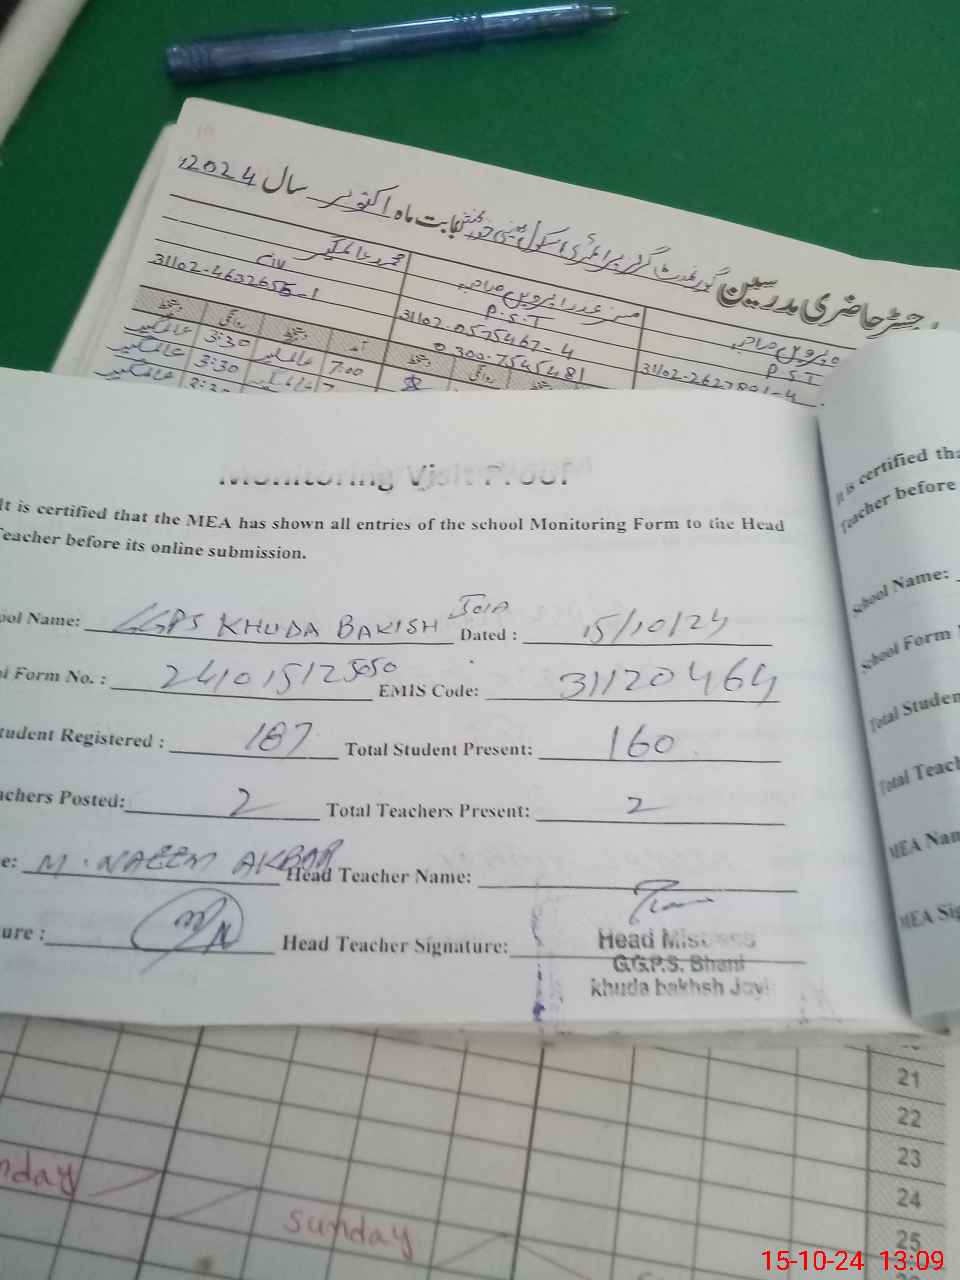 رجسٹر حاضری مدرسین گورنمنٹ گرلز پرائمری اسکول بابت ماہ اکتوبر سال 2024ء
محمد عالمگیر
civ
P.S.T
P.S.T
31102-4632655-1
31102-0575467-4
0300-7545481
31102-2627801-4
عالمگیر 3:30 عالمگیر 7:00
عالمگیر 3:30 عالمگیر
عالمگیر
Monitoring Visit Proof
It is certified that the MEA has shown all entries of the school Monitoring Form to the Head
Teacher before its online submission.
ool Name: GGPS KHUDA BAKISH JOIA Dated : 15/10/24
Form No. : 24101512 5050 EMIS Code: 31120464
tudent Registered : 187 Total Student Present: 160
achers Posted: 2 Total Teachers Present: 2
e: M. NAEEM AKBAR Head Teacher Name:
ure : Head Teacher Signature:
Head Mistress
G.G.P.S. Bhani
khuda bakhsh Joyi
It is certified tha
Teacher before
School Name:
School Form
Total Studen
Total Teach
MEA Nam
MEA Sig
21
22
23
24
25
nday
sunday
15-10-24 13:09